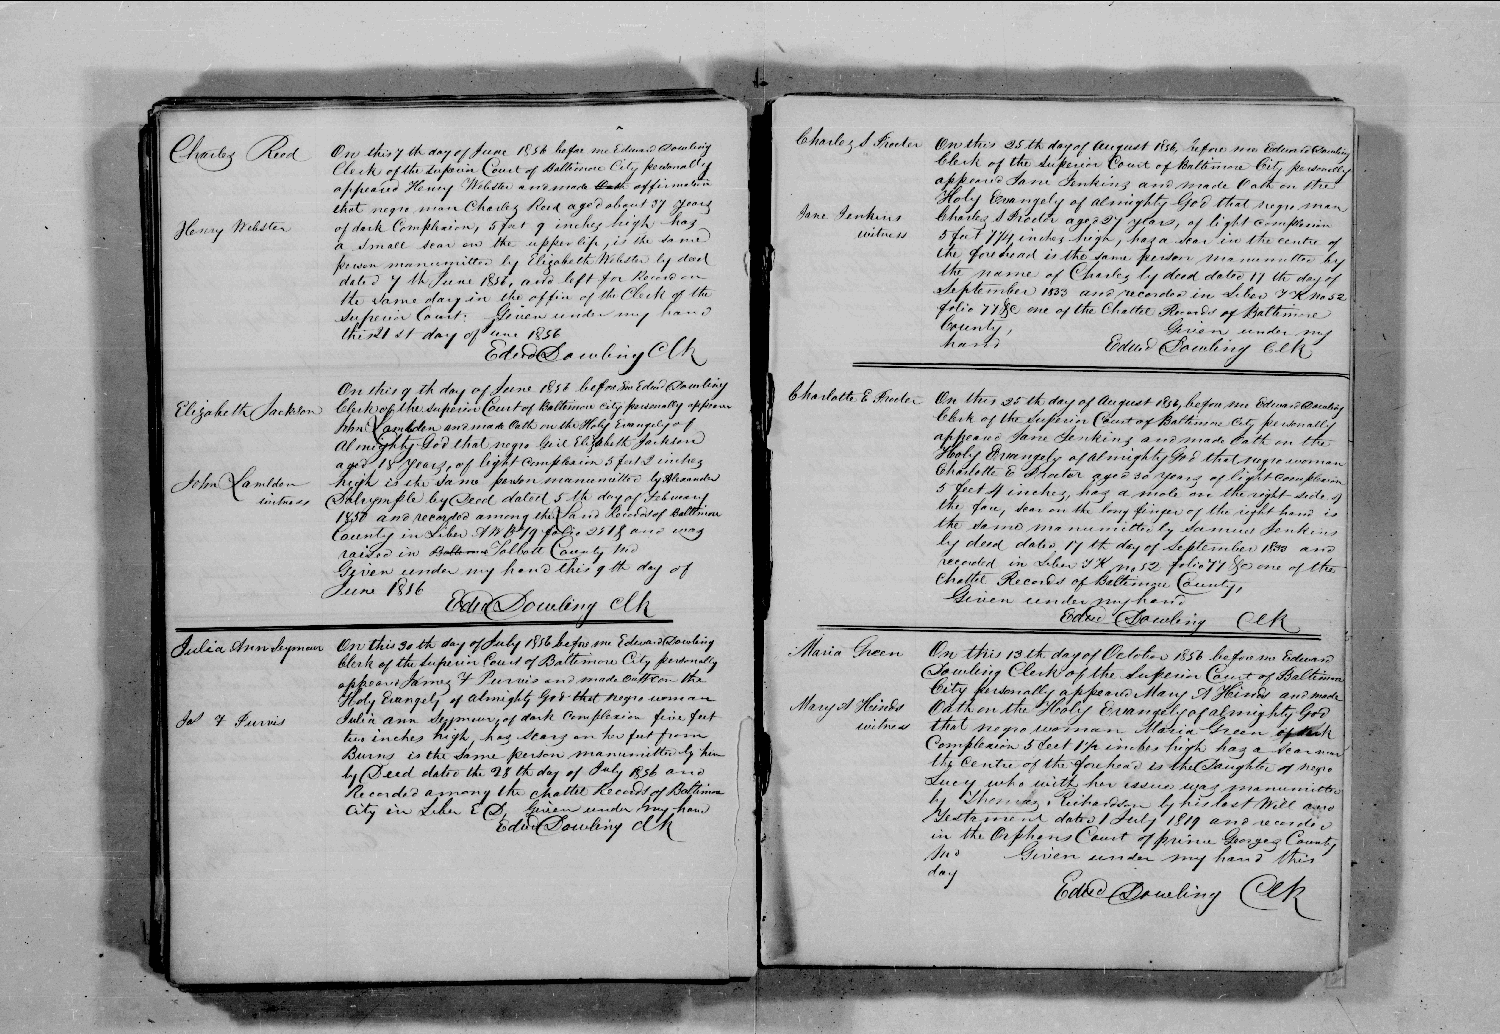 Charles Reed
On this 7th day of June 1856 before me Edward Dowling
Clerk of the Superior Court of Baltimore City personally
appeared Henry Webster and made Oath affirmation
that negro man Charles Reed aged about 37 years
Henry Webster
of dark Complexion, 5 feet 9 inches high has
a small scar on the upper lip, is the same
person manumitted by Elizabeth Webster by deed
dated 7th June 1856, and left for Record on
the same day in the office of the Clerk of the
Superior Court. Given under my hand
this 21st day of June 1856
Edwd Dowling Clk
On this 9th day of June 1856 before me Edwd Dowling
Elizabeth Jackson
Clerk of the Superior Court of Baltimore City personally appeared
John Lambden and made Oath on the Holy Evangely of
Almighty God that negro Girl Elizabeth Jackson
aged 18 Years, of light Complexion 5 feet 2 inches
John Lambden
high is the same person manumitted by Alexander
witness
Dalrymple by Deed dated 5th day of February
1850 and recorded among the Land Records of Baltimore
County in Liber A W B folio and was
raised in Baltimore Talbott County Md
Given under my hand this 9th day of
June 1856
Edwd Dowling Clk
Julia Ann Seymour
On this 30th day of July 1856 before me Edward Dowling
Clerk of the Superior Court of Baltimore City personally
appeared James F Purvis and made oath on the
Holy Evangely of Almighty God that negro woman
Jas F Purvis
Julia Ann Seymour, of dark Complexion five feet
two inches high, has scars on her feet from
Burns is the same person manumitted by him
by Deed dated the 28th day of July 1856 and
Recorded among the Chattel Records of Baltimore
City in Liber E D, Given under my hand
Edwd Dowling Clk
Charles S Procter
On this 25th day of August 1856, before me Edward Dowling
Clerk of the Superior Court of Baltimore City personally
appeared Jane Jenkins and made Oath on the
Holy Evangely of Almighty God that negro man
Jane Jenkins
Charles S Procter aged 27 years, of light complexion
witness
5 feet 7 1/4 inches high, has a scar in the centre of
the forehead is the same person manumitted by
the name of Charles by deed dated 17th day of
September 1833 and recorded in Liber T K no 52
folio 77 &c one of the Chattel Records of Baltimore
County, Given under my
hand
Edwd Dowling Clk
Charlotte E Procter
On this 25th day of August 1856, before me Edward Dowling
Clerk of the Superior Court of Baltimore City personally
appeared Jane Jenkins and made Oath on the
Holy Evangely of Almighty God that negro woman
Charlotte E Procter aged 30 years of light Complexion
5 feet 4 inches, has a mole on the right side of
the face, scar on the long finger of the right hand is
the same manumitted by Samuel Jenkins
by deed dated 17th day of September 1833 and
recorded in Liber T K no 52 folio 77 &c one of the
Chattel Records of Baltimore County,
Given under my hand
Edwd Dowling Clk
Maria Green
On this 13th day of October 1856 before me Edward
Dowling Clerk of the Superior Court of Baltimore
City personally appeared Mary A Heinds and made
Mary A Heinds
Oath on the Holy Evangely of Almighty God
witness
that negro woman Maria Green of dark
Complexion 5 feet 1 1/2 inches high has a scar near
the centre of the forehead is the Daughter of negro
Lucy who with her issue was manumitted
by Thomas Richardson by his last Will and
Testament dated 1 July 1819 and recorded
in the Orphans Court of prince Georges County
Md Given under my hand this
day
Edwd Dowling Clk